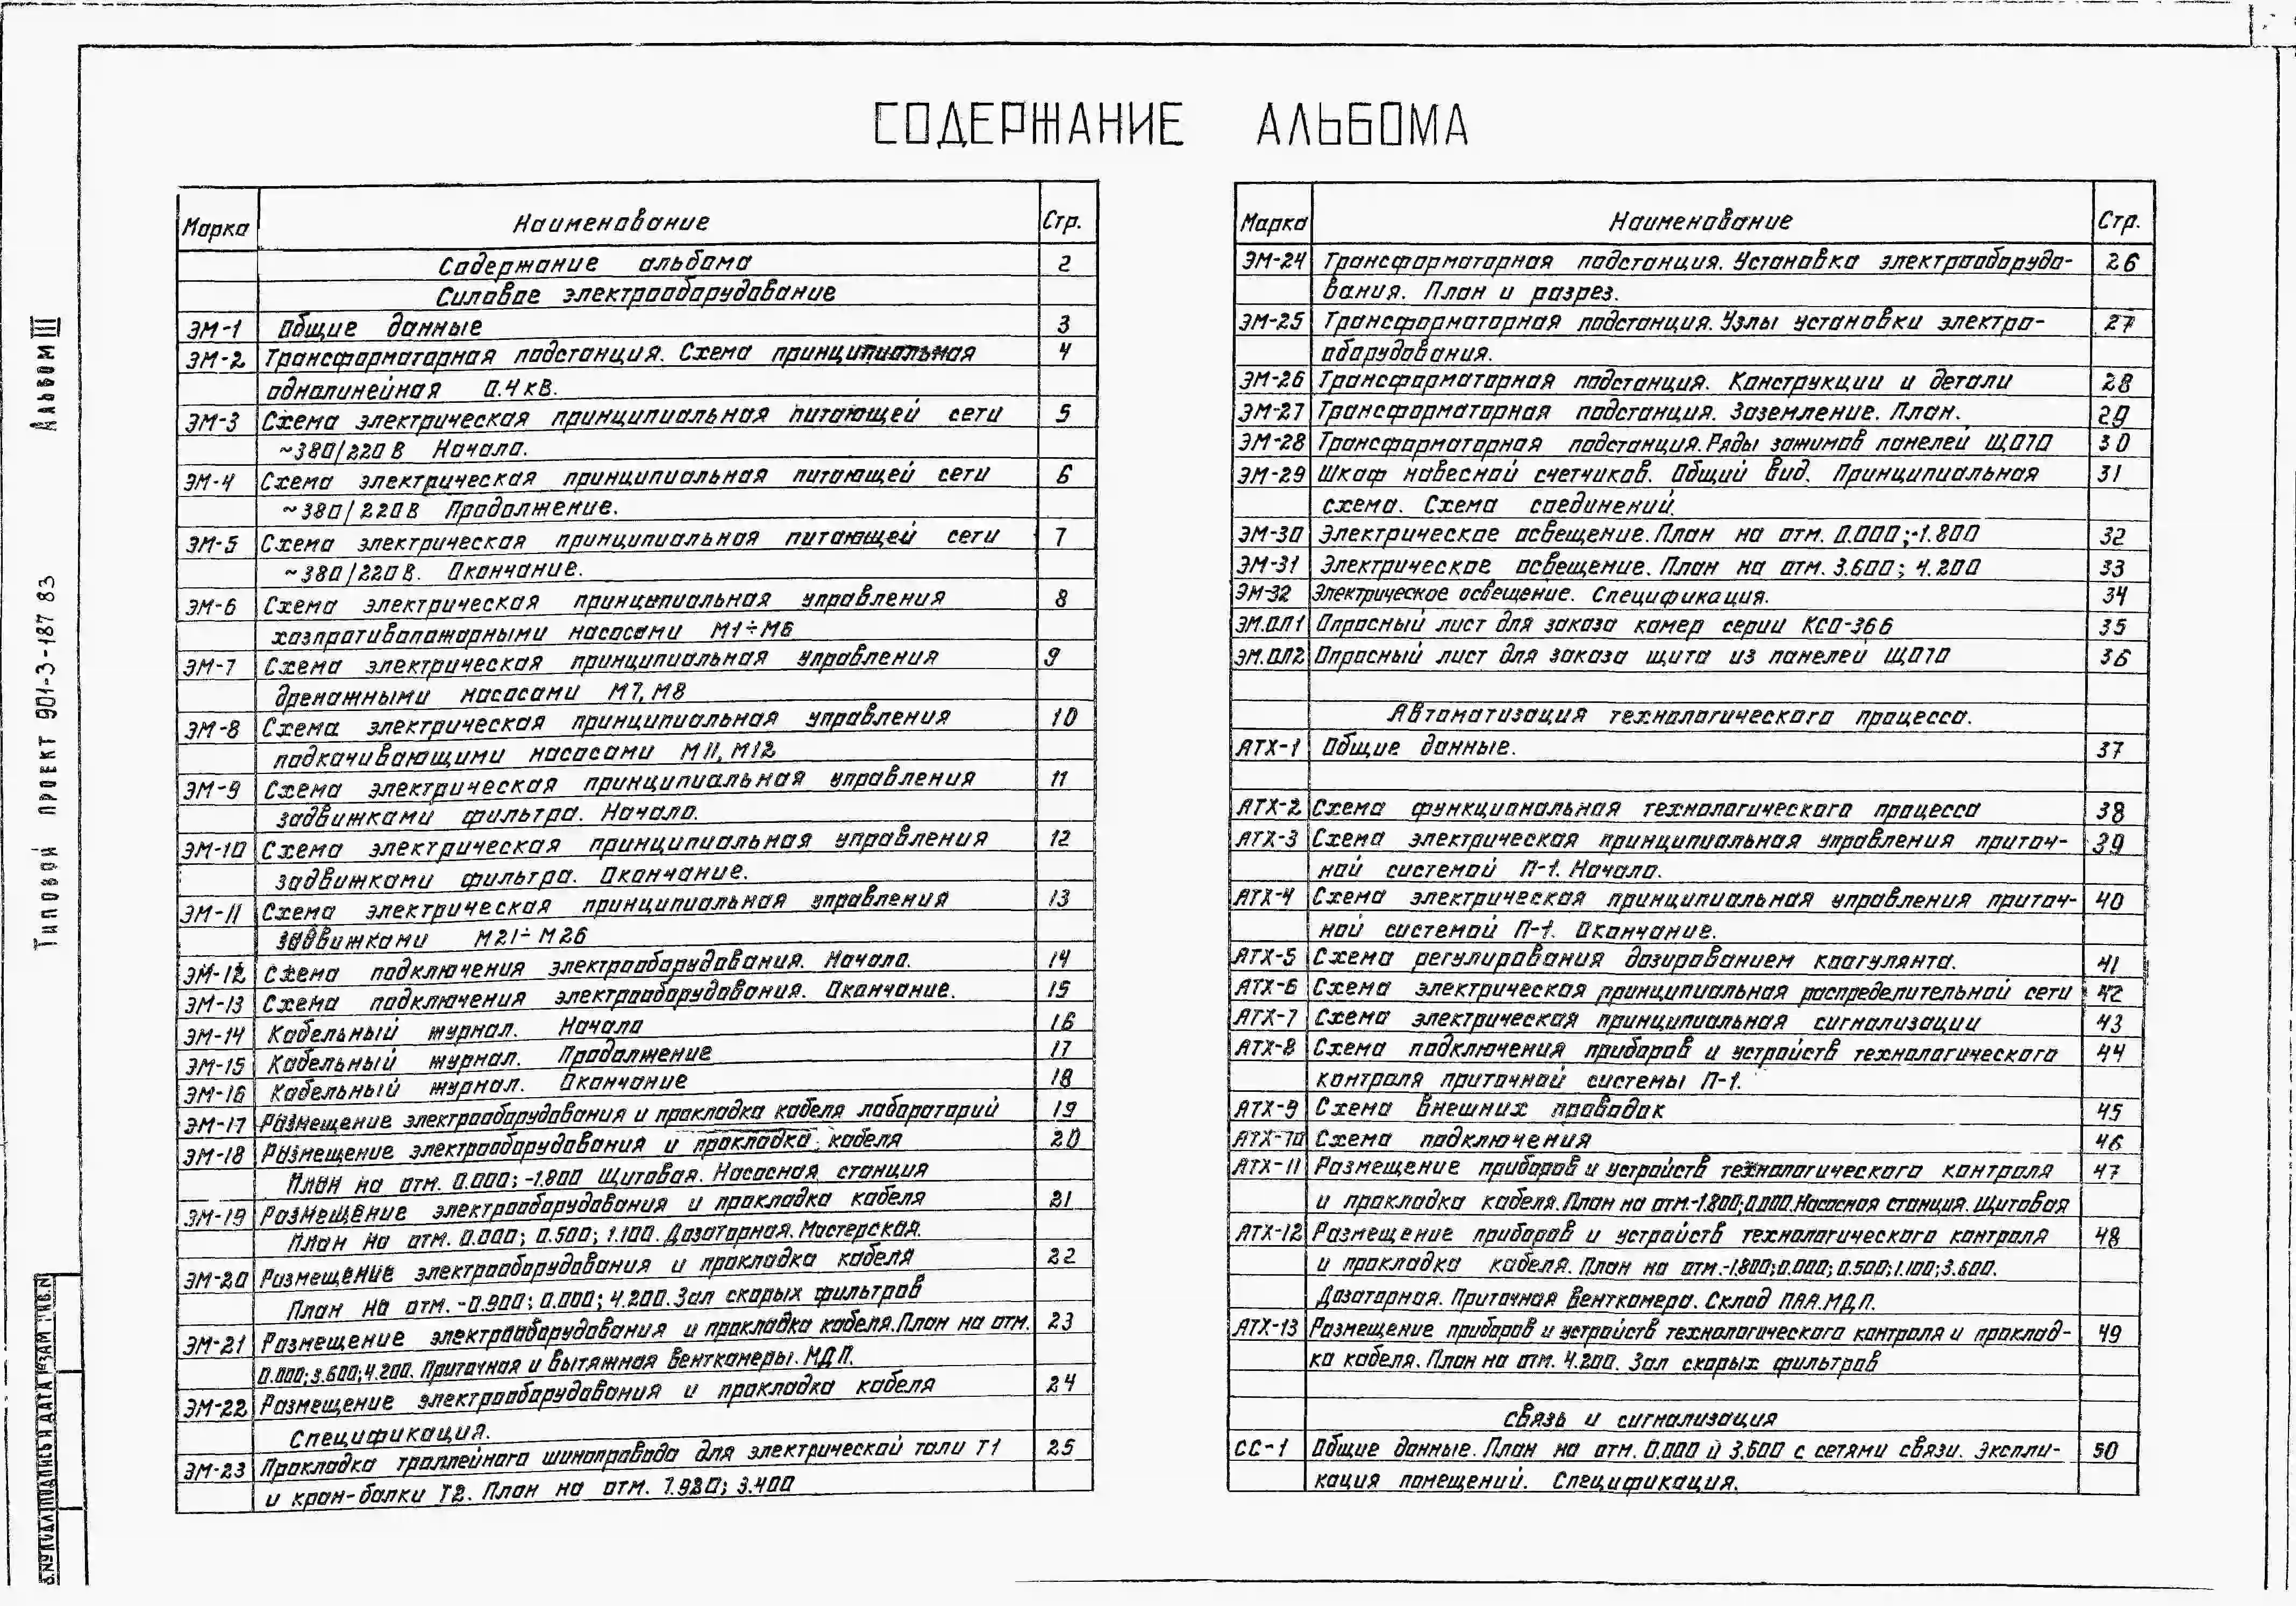 СОДЕРЖАНИЕ АЛЬБОМА
Альбом III
Типовой проект 901-3-187 83
Марка Наименование Стр.
Содержание альбома 2
Силовое электрооборудование
ЭМ-1 Общие данные 3
ЭМ-2 Трансформаторная подстанция. Схема принципиальная 4
однолинейная 0.4 кВ.
ЭМ-3 Схема электрическая принципиальная питающей сети 5
~380/220 В Начало.
ЭМ-4 Схема электрическая принципиальная питающей сети 6
~380/220В Продолжение.
ЭМ-5 Схема электрическая принципиальная питающей сети 7
~380/220В. Окончание.
ЭМ-6 Схема электрическая принципиальная управления 8
хозпротивопожарными насосами М1÷М6
ЭМ-7 Схема электрическая принципиальная управления 9
дренажными насосами М7, М8
ЭМ-8 Схема электрическая принципиальная управления 10
подкачивающими насосами М11, М12
ЭМ-9 Схема электрическая принципиальная управления 11
задвижками фильтра. Начало.
ЭМ-10 Схема электрическая принципиальная управления 12
задвижками фильтра. Окончание.
ЭМ-11 Схема электрическая принципиальная управления 13
задвижками М21÷М26
ЭМ-12 Схема подключения электрооборудования. Начало. 14
ЭМ-13 Схема подключения электрооборудования. Окончание. 15
ЭМ-14 Кабельный журнал. Начало 16
ЭМ-15 Кабельный журнал. Продолжение 17
ЭМ-16 Кабельный журнал. Окончание 18
ЭМ-17 Размещение электрооборудования и прокладка кабеля лабораторий 19
ЭМ-18 Размещение электрооборудования и прокладка кабеля 20
План на отм. 0.000; -1.800 Щитовая. Насосная станция
ЭМ-19 Размещение электрооборудования и прокладка кабеля 21
План на отм. 0.000; 0.500; 1.100. Дозаторная. Мастерская.
ЭМ-20 Размещение электрооборудования и прокладка кабеля 22
План на отм. -0.900; 0.000; 4.200. Зал скорых фильтров
ЭМ-21 Размещение электрооборудования и прокладка кабеля. План на отм. 23
0.000; 3.600; 4.200. Приточная и вытяжная венткамеры. МДП.
ЭМ-22 Размещение электрооборудования и прокладка кабеля 24
Спецификация.
ЭМ-23 Прокладка троллейного шинопровода для электрической тали Т1 25
и кран-балки Т2. План на отм. 7.920; 3.400
Марка Наименование Стр.
ЭМ-24 Трансформаторная подстанция. Установка электрооборудо- 26
вания. План и разрез.
ЭМ-25 Трансформаторная подстанция. Узлы установки электро- 27
оборудования.
ЭМ-26 Трансформаторная подстанция. Конструкции и детали 28
ЭМ-27 Трансформаторная подстанция. Заземление. План. 29
ЭМ-28 Трансформаторная подстанция. Ряды зажимов панелей ЩО70 30
ЭМ-29 Шкаф навесной счетчиков. Общий вид. Принципиальная 31
схема. Схема соединений.
ЭМ-30 Электрическое освещение. План на отм. 0.000; -1.800 32
ЭМ-31 Электрическое освещение. План на отм. 3.600; 4.200 33
ЭМ-32 Электрическое освещение. Спецификация. 34
ЭМ.ОЛ1 Опросный лист для заказа камер серии КСО-366 35
ЭМ.ОЛ2 Опросный лист для заказа щита из панелей ЩО70 36
Автоматизация технологического процесса.
АТХ-1 Общие данные. 37
АТХ-2 Схема функциональная технологического процесса 38
АТХ-3 Схема электрическая принципиальная управления приточ- 39
ной системой П-1. Начало.
АТХ-4 Схема электрическая принципиальная управления приточ- 40
ной системой П-1. Окончание.
АТХ-5 Схема регулирования дозированием коагулянта. 41
АТХ-6 Схема электрическая принципиальная распределительной сети 42
АТХ-7 Схема электрическая принципиальная сигнализации 43
АТХ-8 Схема подключения приборов и устройств технологического 44
контроля приточной системы П-1.
АТХ-9 Схема внешних проводок 45
АТХ-10 Схема подключения 46
АТХ-11 Размещение приборов и устройств технологического контроля 47
и прокладка кабеля. План на отм. -1.800; 0.000. Насосная станция. Щитовая
АТХ-12 Размещение приборов и устройств технологического контроля 48
и прокладка кабеля. План на отм. -1.800; 0.000; 0.500; 1.100; 3.600.
Дозаторная. Приточная венткамера. Склад ПАА. МДП.
АТХ-13 Размещение приборов и устройств технологического контроля и проклад- 49
ка кабеля. План на отм. 4.200. Зал скорых фильтров
Связь и сигнализация
СС-1 Общие данные. План на отм. 0.000 и 3.600 с сетями связи. Экспли- 50
кация помещений. Спецификация.